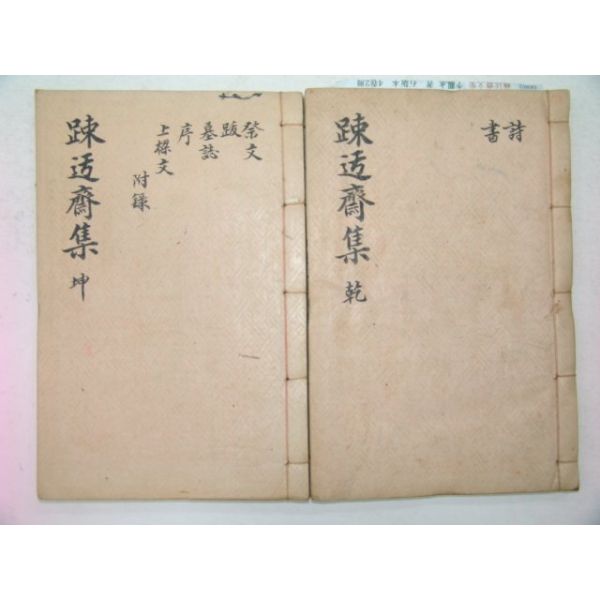 詩
書
踈迃齋集 乾
祭文
跋
墓誌
序
上樑文
附錄
踈迃齋集 坤